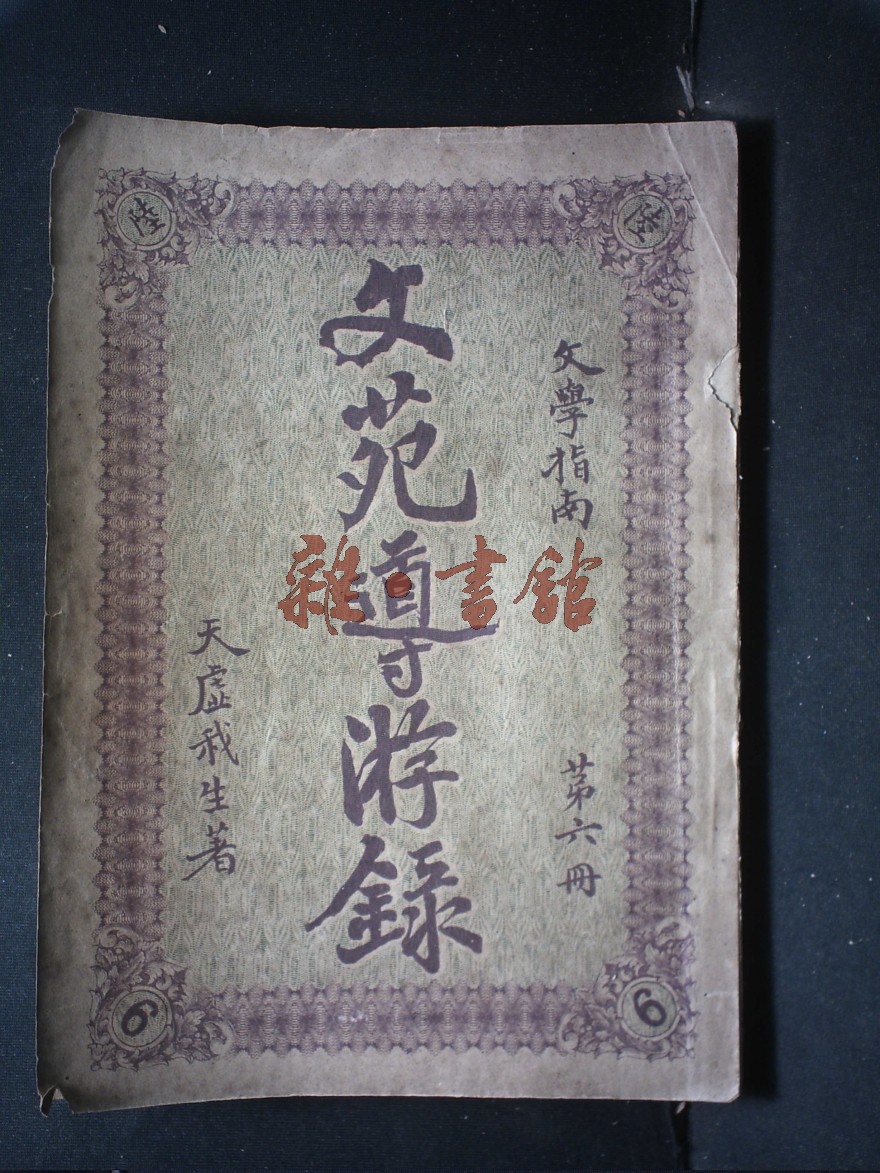 陸
文學指南
第六冊
文苑導游錄
天虛我生著
雜·書館
6
6